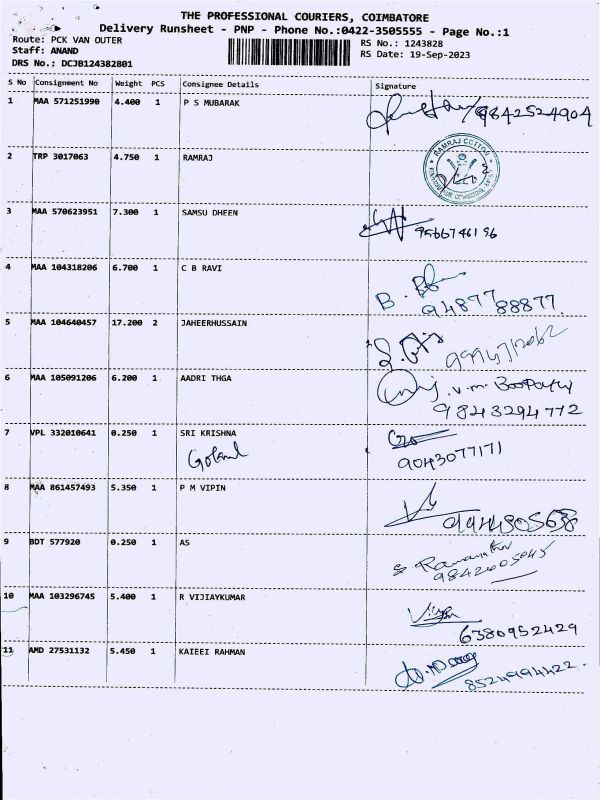 THE PROFESSIONAL COURIERS, COIMBATORE
Delivery Runsheet - PNP - Phone No.:0422-3505555 - Page No.:1
Route: PCK VAN OUTER
RS No.: 1243828
Staff: ANAND
RS Date: 19-Sep-2023
DRS No.: DCJB124382801
S No Consignment No Weight PCS Consignee Details Signature
1 MAA 571251990 4.400 1 P S MUBARAK 9842524904
2 TRP 3017063 4.750 1 RAMRAJ
RAMRAJ COTTON
3 MAA 570623951 7.300 1 SAMSU DHEEN
4 MAA 104318206 6.700 1 C B RAVI
B.
94877 88877
5 MAA 104640457 17.200 2 JAHEERHUSSAIN
6 MAA 105091206 6.200 1 AADRI THGA V.M. Boopathy
9843294772
7 VPL 332010641 0.250 1 SRI KRISHNA
9043077171
8 MAA 861457493 5.350 1 P M VIPIN
9944805638
9 BDT 577920 0.250 1 AS
10 MAA 103296745 5.400 1 R VIJIAYKUMAR
6380952429
11 AMD 27531132 5.450 1 KAIEEI RAHMAN
8524994422